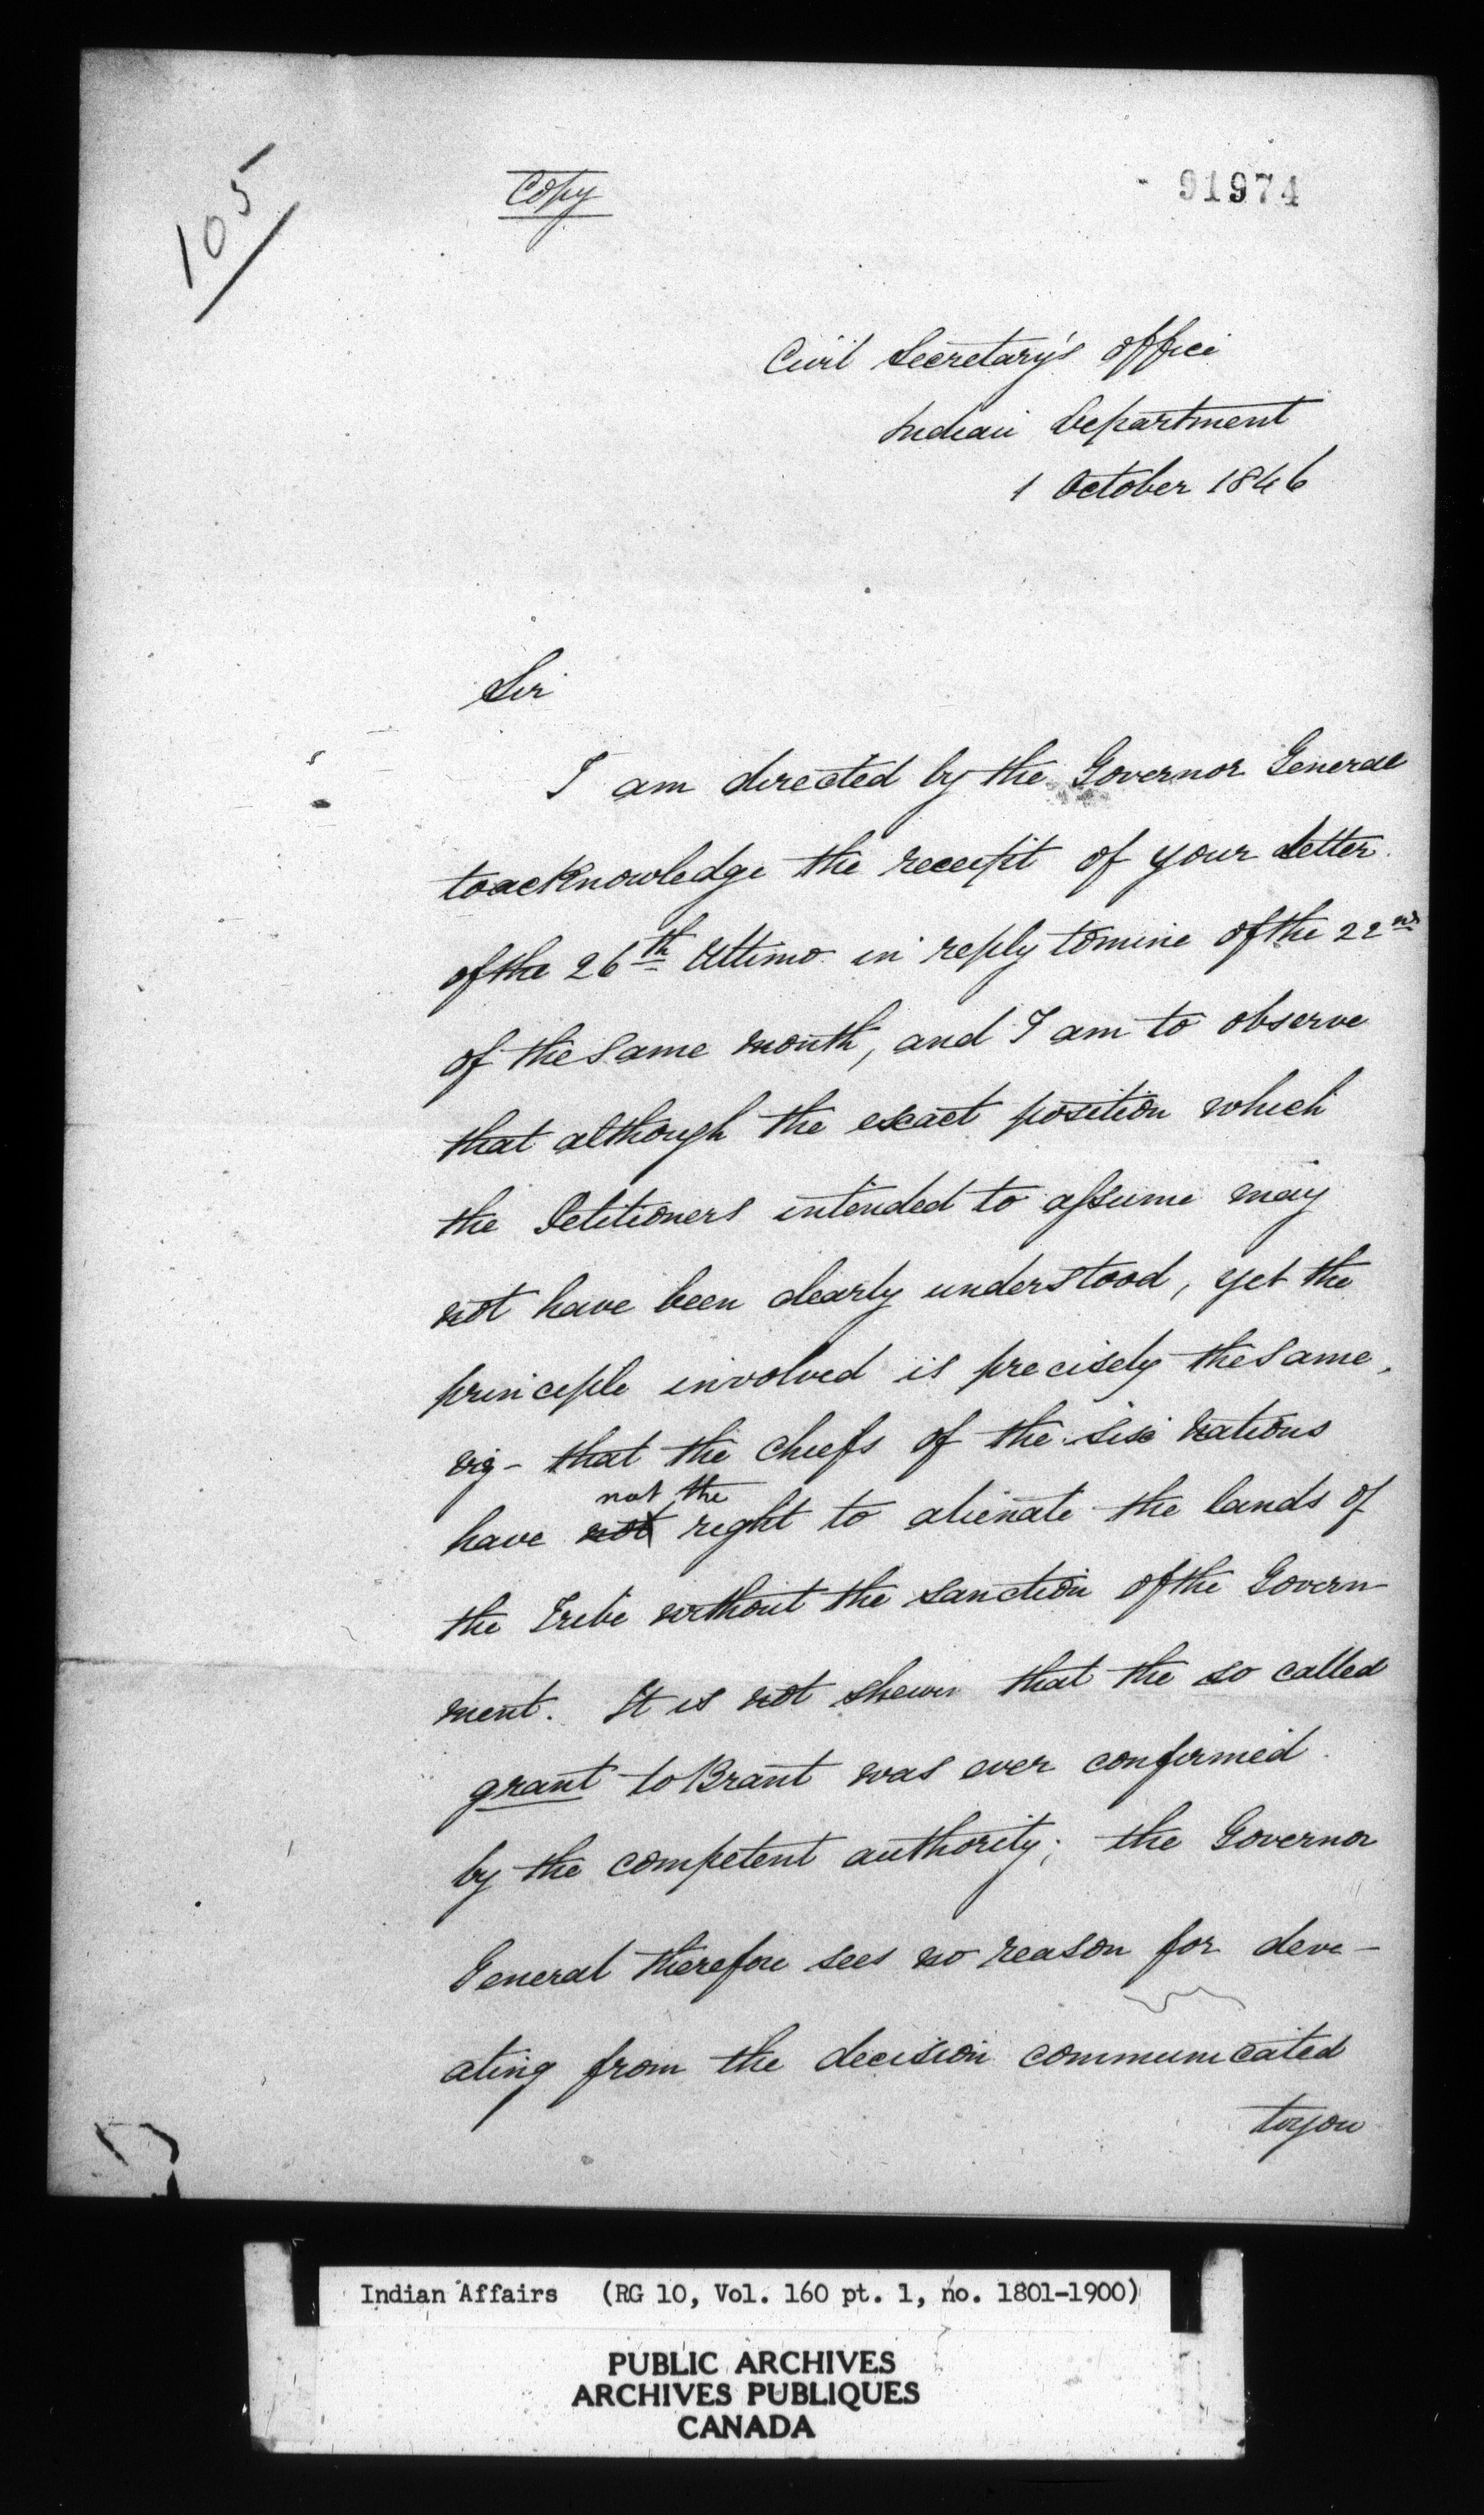 105
Copy
91974
Civil Secretary's Office
Indian Department
1 October 1846
Sir
I am directed by the Governor General
to acknowledge the receipt of your letter
of the 26th Ultimo in reply to mine of the 22nd
of the same month, and I am to observe
that although the exact position which
the Petitioners intended to assume may
not have been clearly understood, yet the
principle involved is precisely the same,
viz - that the chiefs of the Six Nations
not the
have not right to alienate the lands of
the Tribe without the sanction of the Govern-
ment. It is not shewn that the so called
grant to Brant was ever confirmed
by the competent authority; the Governor
General therefore sees no reason for devi-
ating from the decision communicated
to you
Indian Affairs (RG 10, Vol. 160 pt. 1, no. 1801-1900)
PUBLIC ARCHIVES
ARCHIVES PUBLIQUES
CANADA